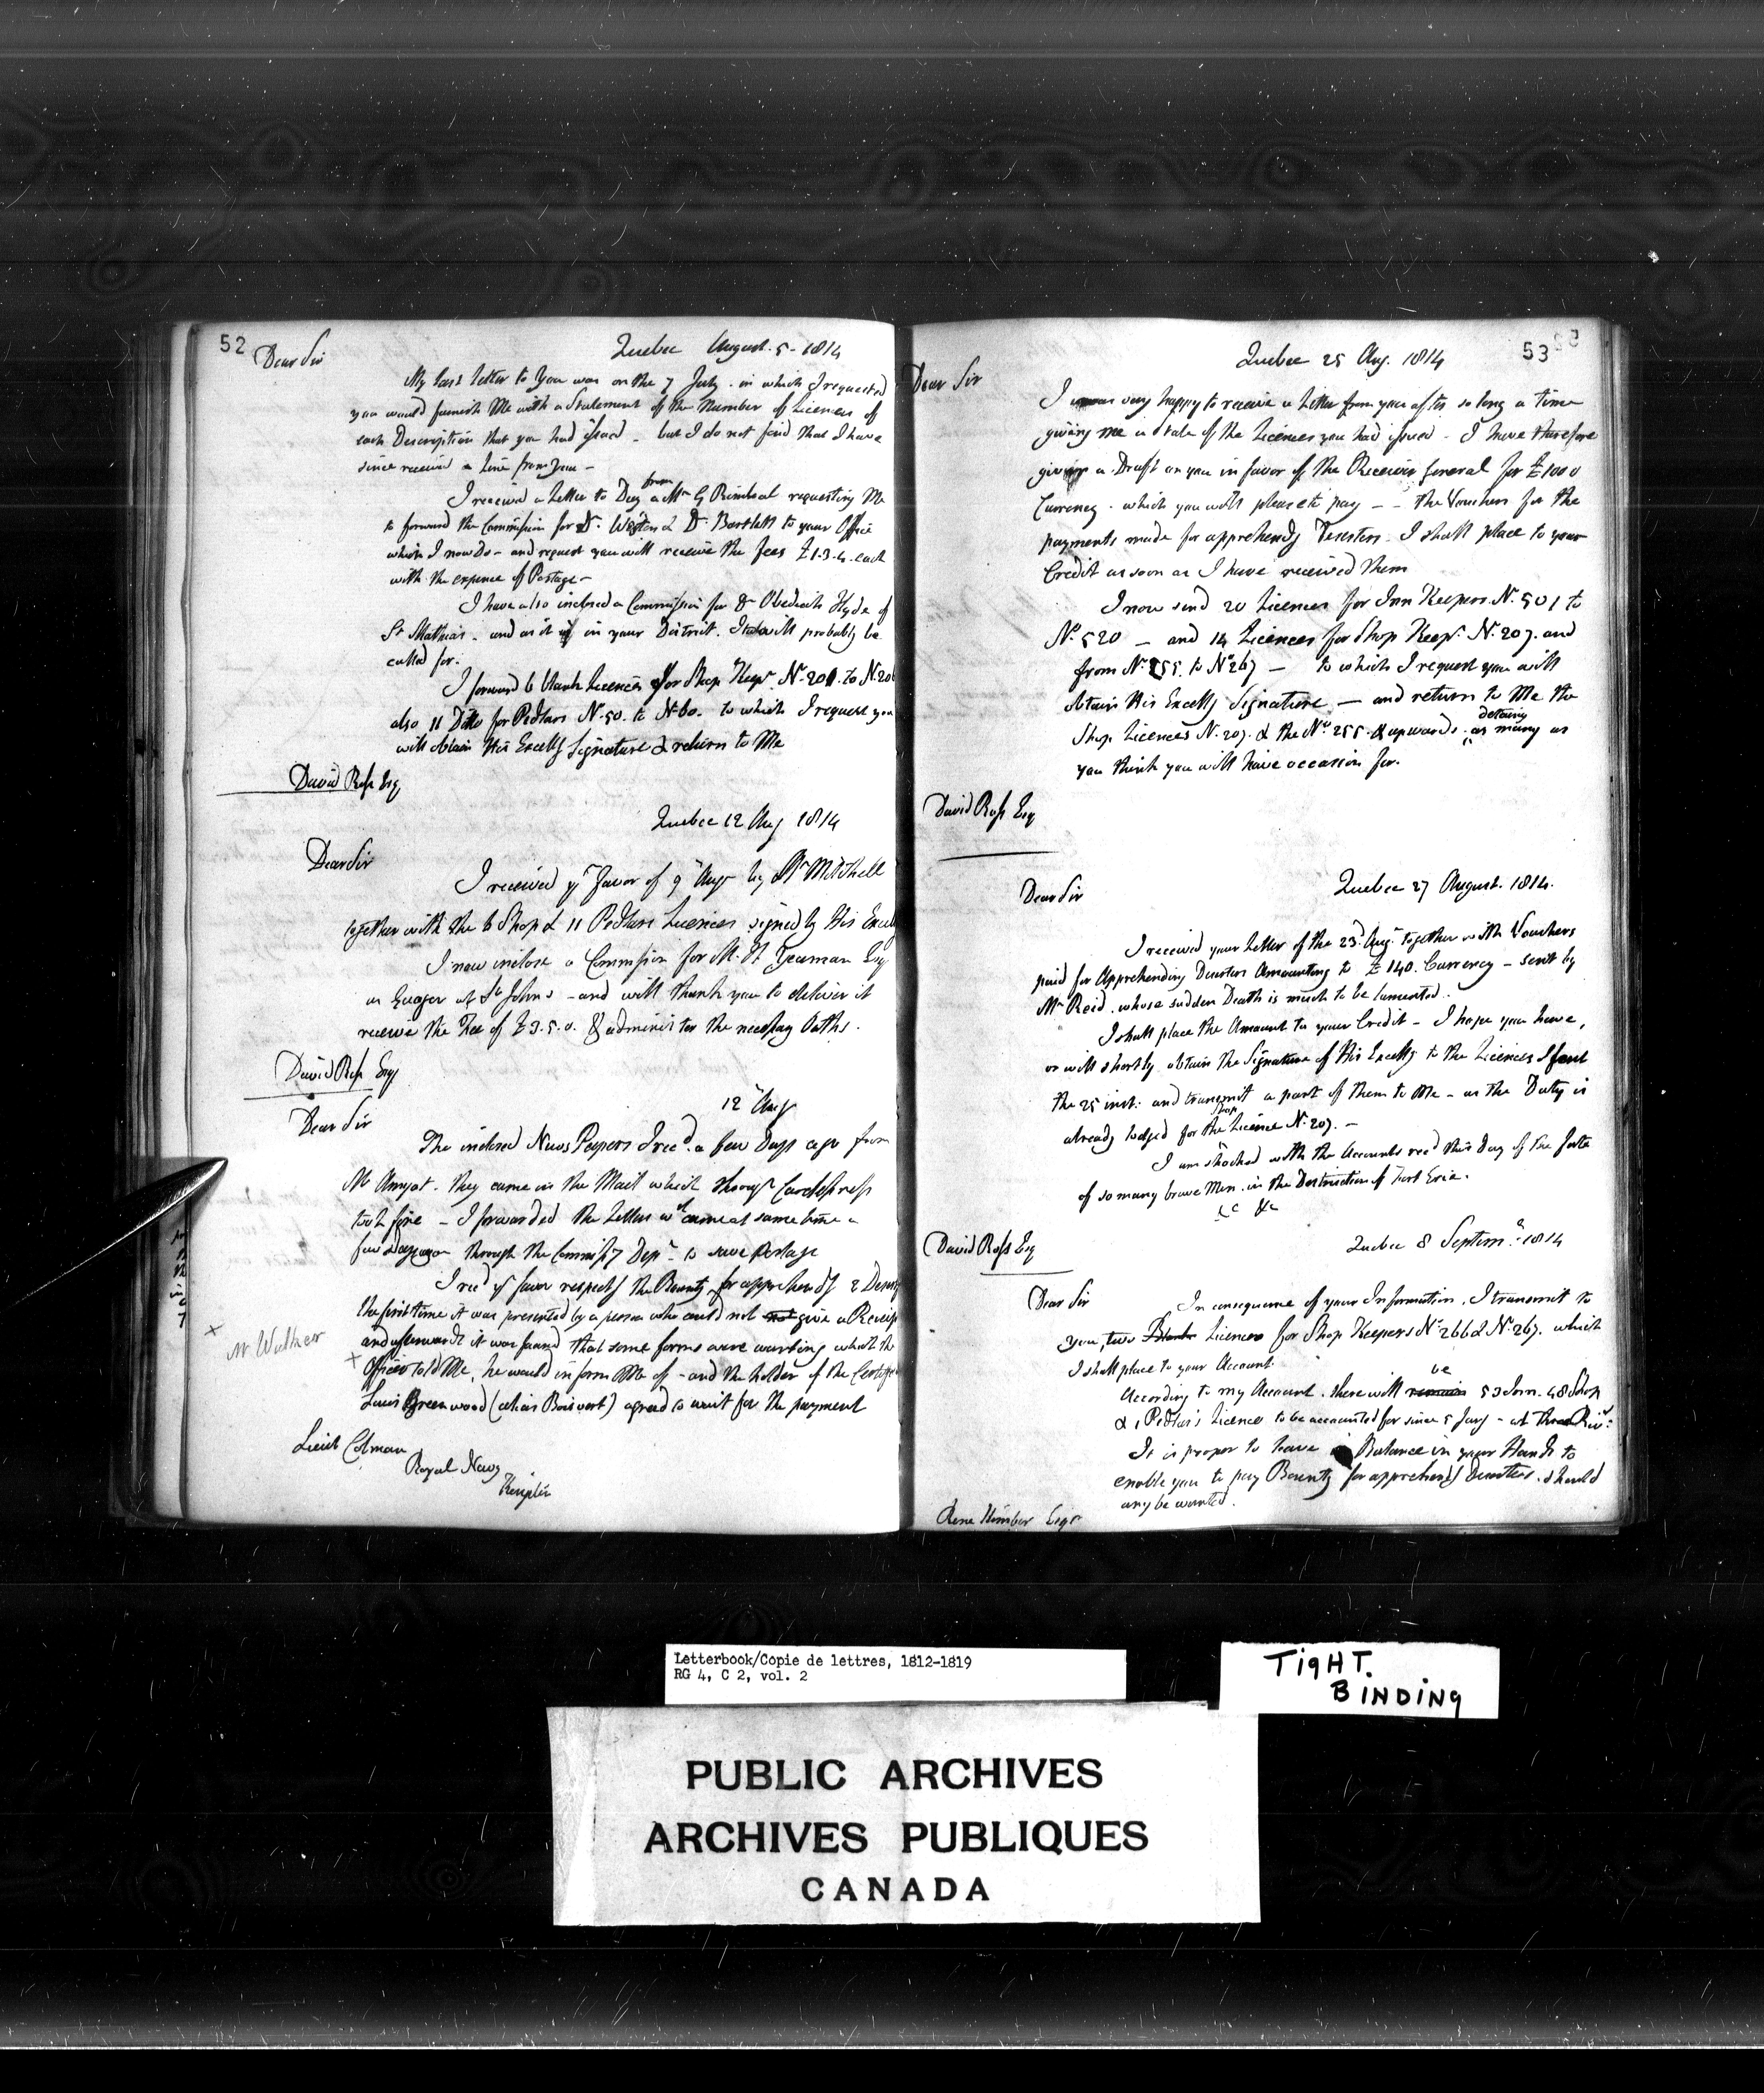 52
Quebec August. 5 - 1814
Dear Sir
My last letter to You was on the 7 July. in which I requested
you would furnish Me with a Statement of the Number of Licences of
each Description that you had issued - but I do not find that I have
since received a line from you -
I received a Letter to Day from a Mr G Rimbal requesting Me
to forward the Commission for Dr. Weston & Dr. Bartlett to your Office
which I now do - and request you will receive the fees £1.3.4. each
with the expence of Postage -
I have also inclosed a Commission for Dr Obediah Hyde of
St Mathias - and as it is in your District. It will probably be
called for.
I forward 6 blank Licences for Shop Keeprs N. 201. to N. 206
also 11 Ditto for Pedlars N. 50. to N. 60. to which I request you
will obtain His Excellys Signature & return to Me
David Ross Esq
Quebec 12 Aug 1814
Dear Sir
I received yr Favor of 9 Augt by Mr Mitchell
together with the 6 Shop & 11 Pedlars Licences signed by His Excelly
I now inclose a Commission for M. H. Yeoman Esq
as Guager at St Johns - and will thank you to deliver it
receive the Fee of £3.5.0. & administer the necessary Oaths.
David Ross Esq
12 Augt
Dear Sir
The inclosed News Papers I recd. a few Days ago from
Mr Amyot. they came in the Mail which through Carelessness
took fire - I forwarded the Letters wh came at same time a
few Days ago through the Commissy Dept - to save Postage
I recd yr favor respectg the Bounty for apprehendg 2 Deserts
the first time it was presented by a person who could not not give a Receipt
and afterwards it was found that some forms were wanting which the
x
Mr Walker
x Officer told Me, he would inform Me of - and the holder of the Certifi
Louis Greenwood (alias Boisvert) agreed to wait for the payment
Lieut Colman
Royal Navy
53
Quebec 25 Aug. 1814
Dear Sir
I was very happy to receive a Letter from you after so long a time
giving me a State of the Licences you had issued - I have therefore
given a Draft on you in favor of the Receiver General for £1000
Currency - which you will please to pay - - the Vouchers for the
payments made for apprehendg Deserters - I shall place to your
Credit as soon as I have received them
I now send 20 Licences for Inn Keepers N. 501 to
No 520 - and 14 Licences for Shop Keeprs N. 207. and
from No 255. to No 267 - to which I request you will
obtain His Excellys Signature - and return to Me the
Shop Licences N. 207. & the Nos 255. & upwards. detaing as many as
you think you will have occasion for.
David Ross Esq
Quebec 27 August. 1814.
Dear Sir
I received your Letter of the 23d. Aug. together with Vouchers
paid for Apprehending Deserters Amounting to £140. Currency - sent by
Mr Reid. whose sudden Death is much to be lamented.
I shall place the Amount to your Credit - I hope you have,
or will shortly obtain the Signature of His Excelly to the Licences I sent
the 25 inst: and transmit a part of them to Me - as the Duty is
already lodged for the Shop Licence N. 207. -
I am shocked with the Accounts recd this Day of the fate
of so many brave Men. in the Destruction of Fort Erie.
&c &c
David Ross Esq
Quebec 8 Septemr. 1814
Dear Sir
In consequence of your Information, I transmit to
you, two Blank Licences for Shop Keepers No 266 & N. 267. which
I shall place to your Account.
According to my Account. there will remain be 53 Inn. 48 Shop
& 1 Pedlar's Licence to be accounted for since 5 Jany - at Three Rivs:
It is proper to leave a Balance in your Hands to
enable you to pay Bounty for apprehendg Deserters. should
any be wanted.
Rene Kimber Esqr
Letterbook/Copie de lettres, 1812-1819
RG 4, C 2, vol. 2
TIGHT.
BINDING
PUBLIC ARCHIVES
ARCHIVES PUBLIQUES
CANADA